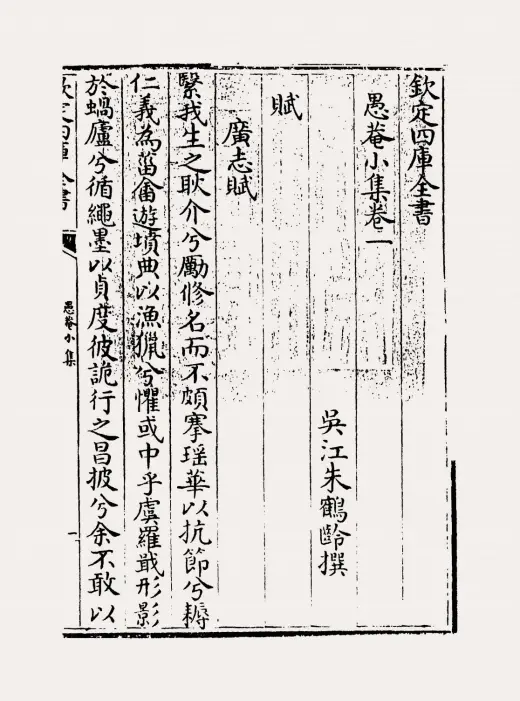 欽定四庫全書
愚菴小集卷一
吳江朱鶴齡撰
賦
廣志賦
繄我生之耿介兮勵修名而不頗搴瑶華以抗節兮耨
仁義為菑畬遊墳典以漁獵兮懼或中乎虞羅戢形影
於蝸廬兮循繩墨以貞度彼詭行之昌披兮余不敢以
欽定四庫全書
愚菴小集
一